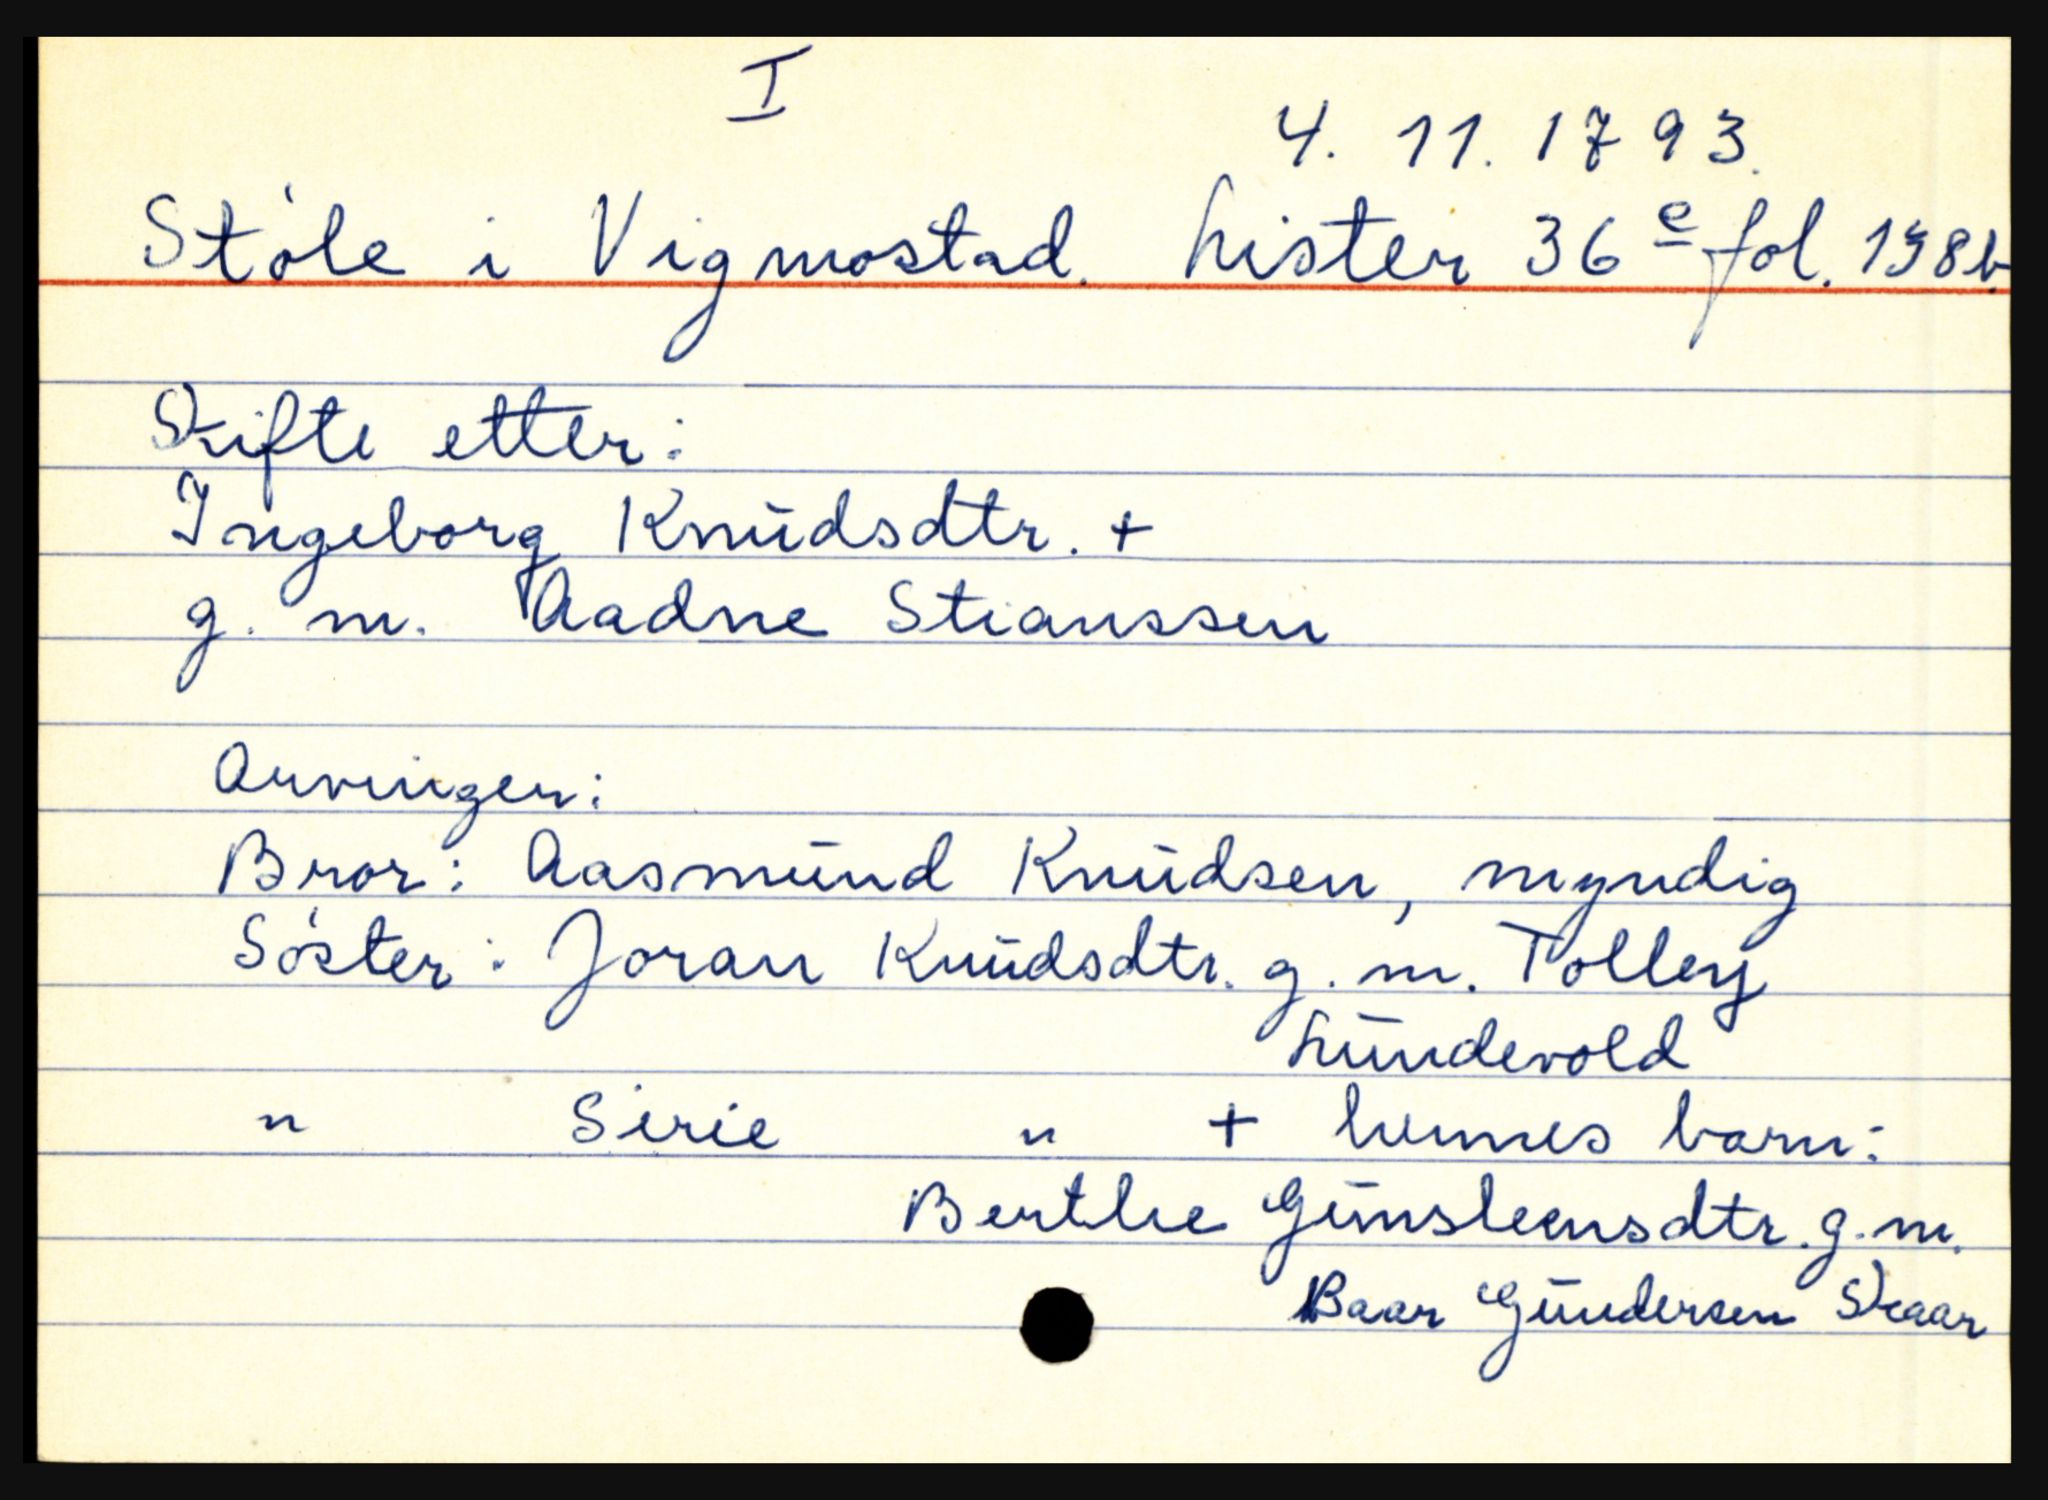 I
4. 11. 1793.
Støle i Vigmostad. Lister 36 e fol. 198b.
Skifte etter:
Ingeborg Knudsdtr. +
g. m. Aadne Stianssen
Arvinger:
Bror: Aasmund Knudsen, myndig
Søster: Joran Knudsdtr. g. m. Tolley
Lundevold
" Sirie " + hennes barn:
Berthe Gunsteensdtr. g. m.
Baar Gundersen Skaar